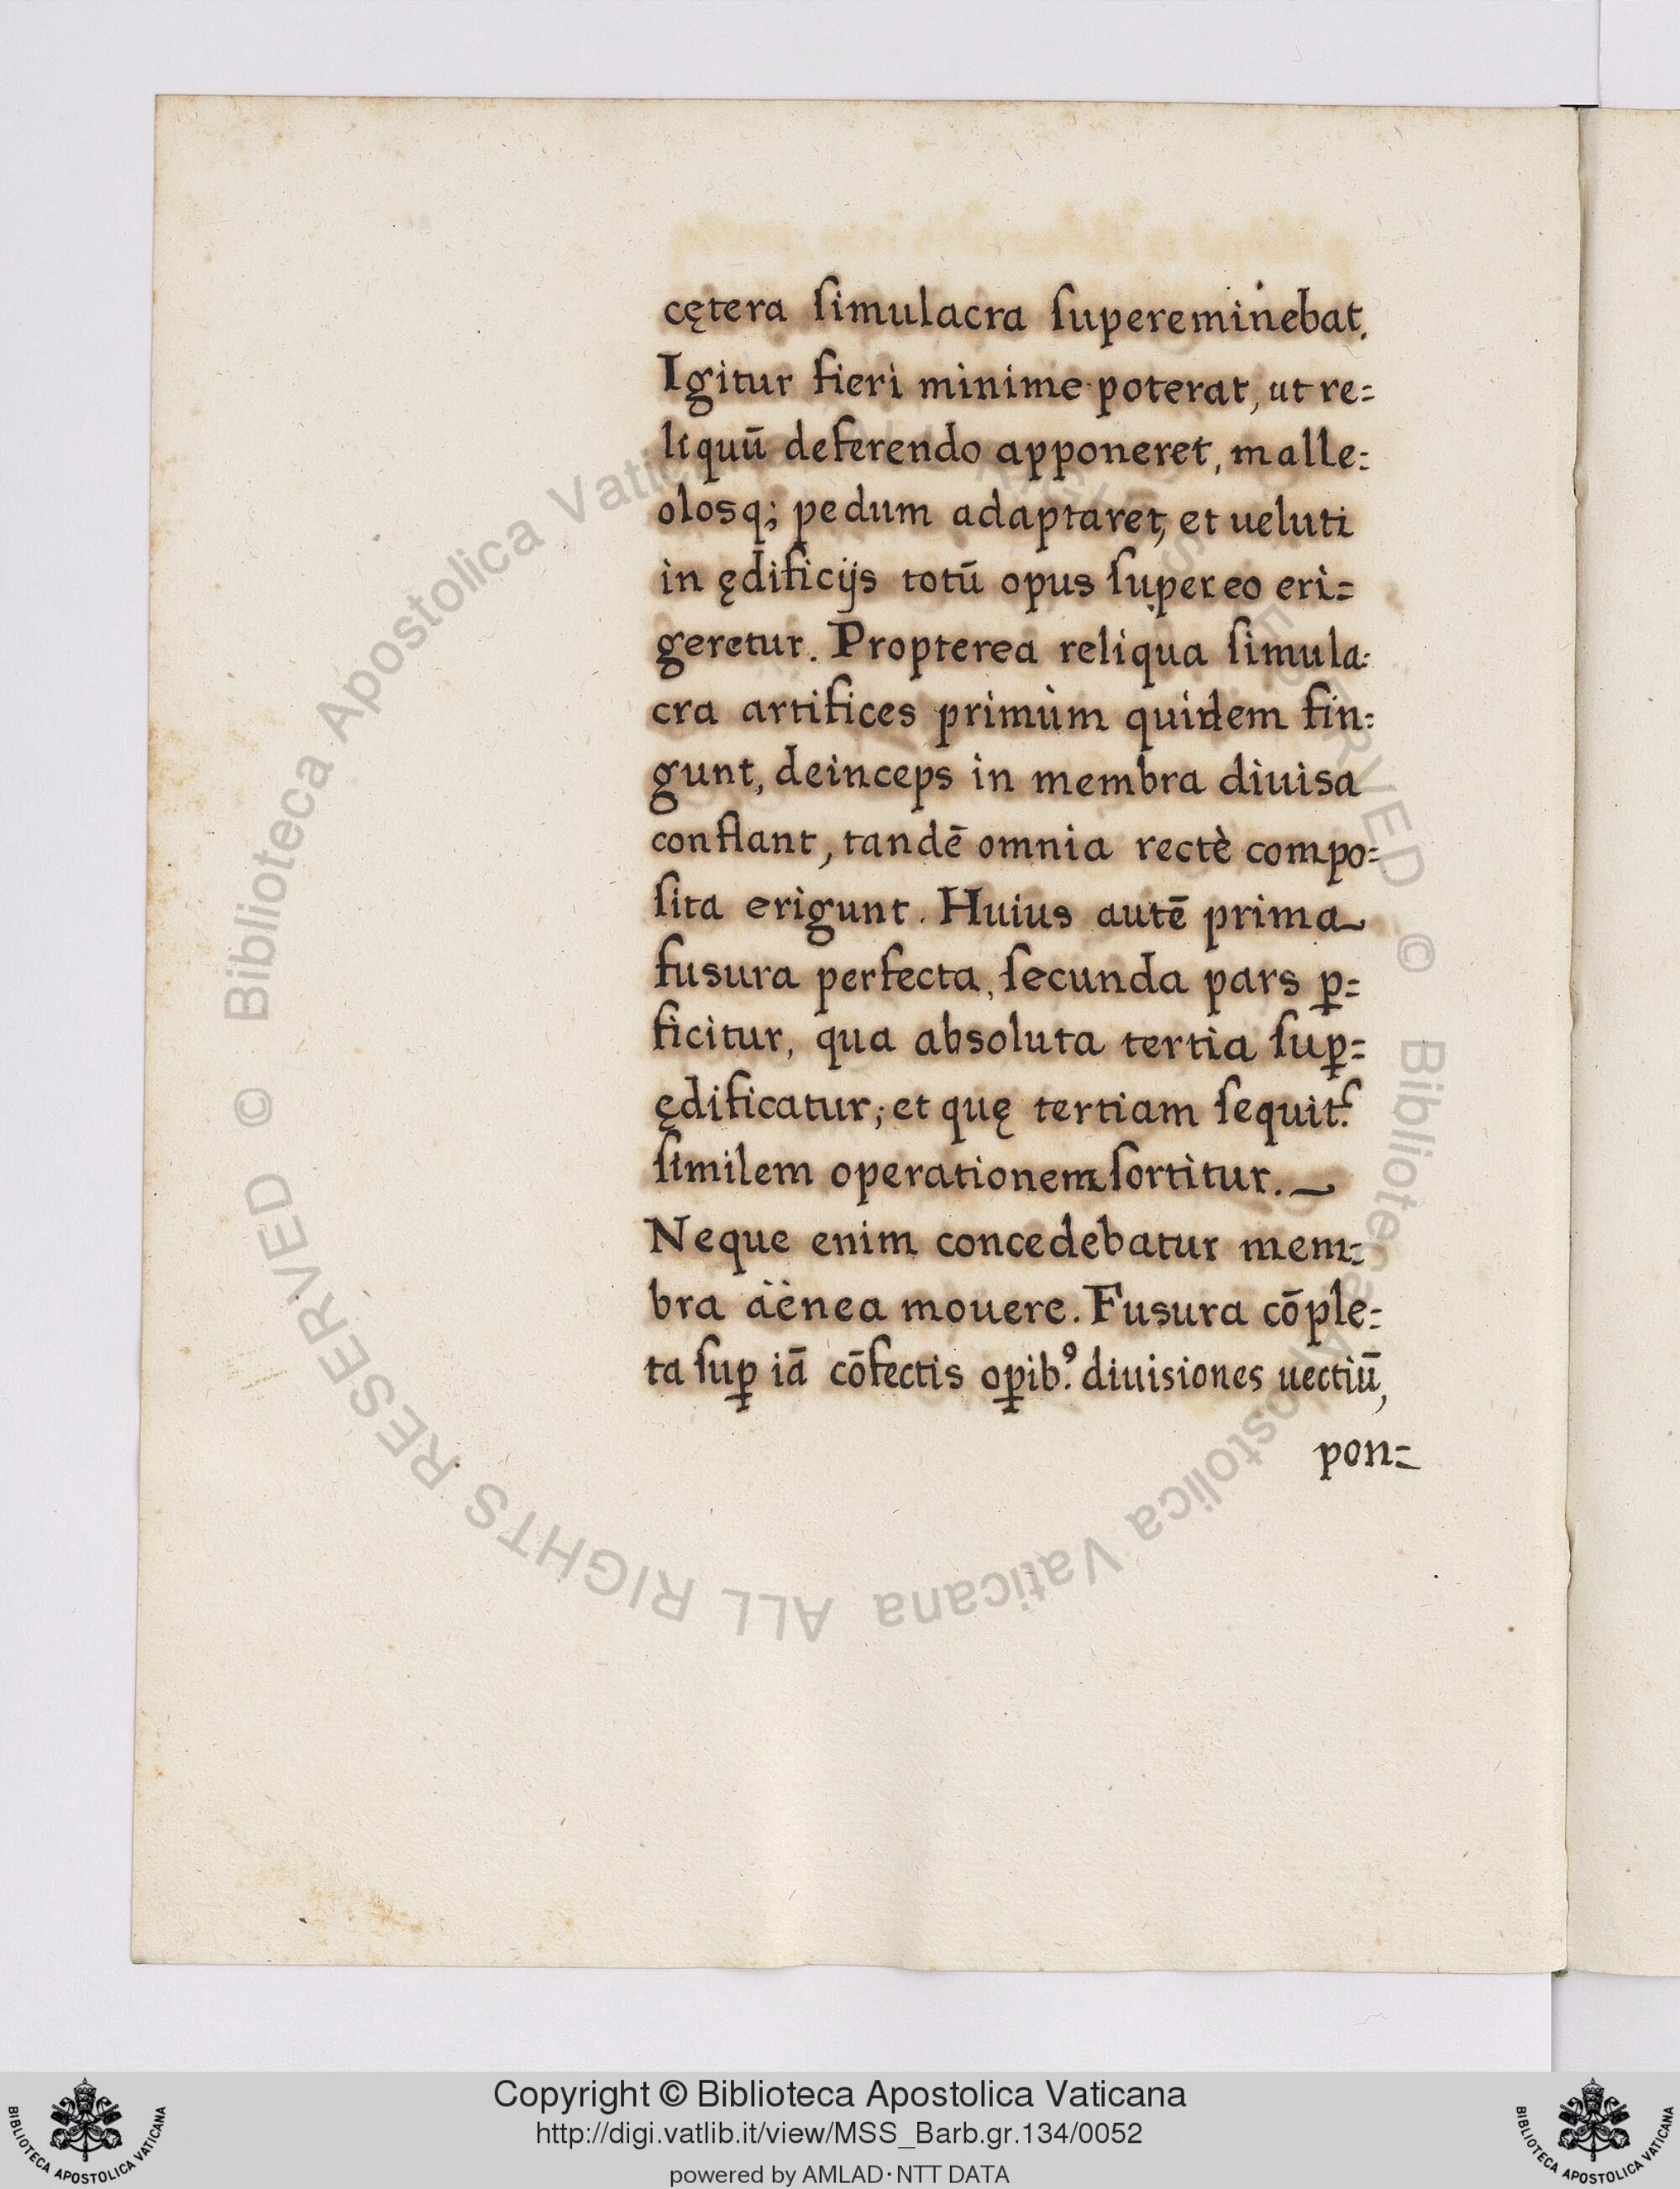 cętera ſimulacra ſupereminebat.
Igitur fieri minime poterat, ut re=
liquū deferendo apponeret, malle=
olosq; pedum adaptaret, et ueluti
in ędificijs totū opus ſuper eo eri=
geretur. Propterea reliqua ſimula=
cra artifices primùm quidem fin=
gunt, deinceps in membra diuisa
conflant, tandē omnia rectè compo=
ſita erigunt. Huius autē prima
fusura perfecta, ſecunda pars ꝑ=
ficitur, qua absoluta tertia ſuꝑ=
ędificatur; et quę tertiam ſequit.ᷣ
ſimilem operationem ſortitur.
Neque enim concedebatur mem=
bra äënea mouere. Fusura cōple=
ta ſuꝑ iā cōfectis oꝑib.ꝰ diuisiones uectiū,
pon=
© Biblioteca Apostolica Vaticana ALL RIGHTS RESERVED © Biblioteca Apostolica Vaticana ALL RIGHTS RESERVED
Copyright © Biblioteca Apostolica Vaticana
http://digi.vatlib.it/view/MSS_Barb.gr.134/0052
powered by AMLAD·NTT DATA
BIBLIOTECA APOSTOLICA VATICANA
BIBLIOTECA APOSTOLICA VATICANA